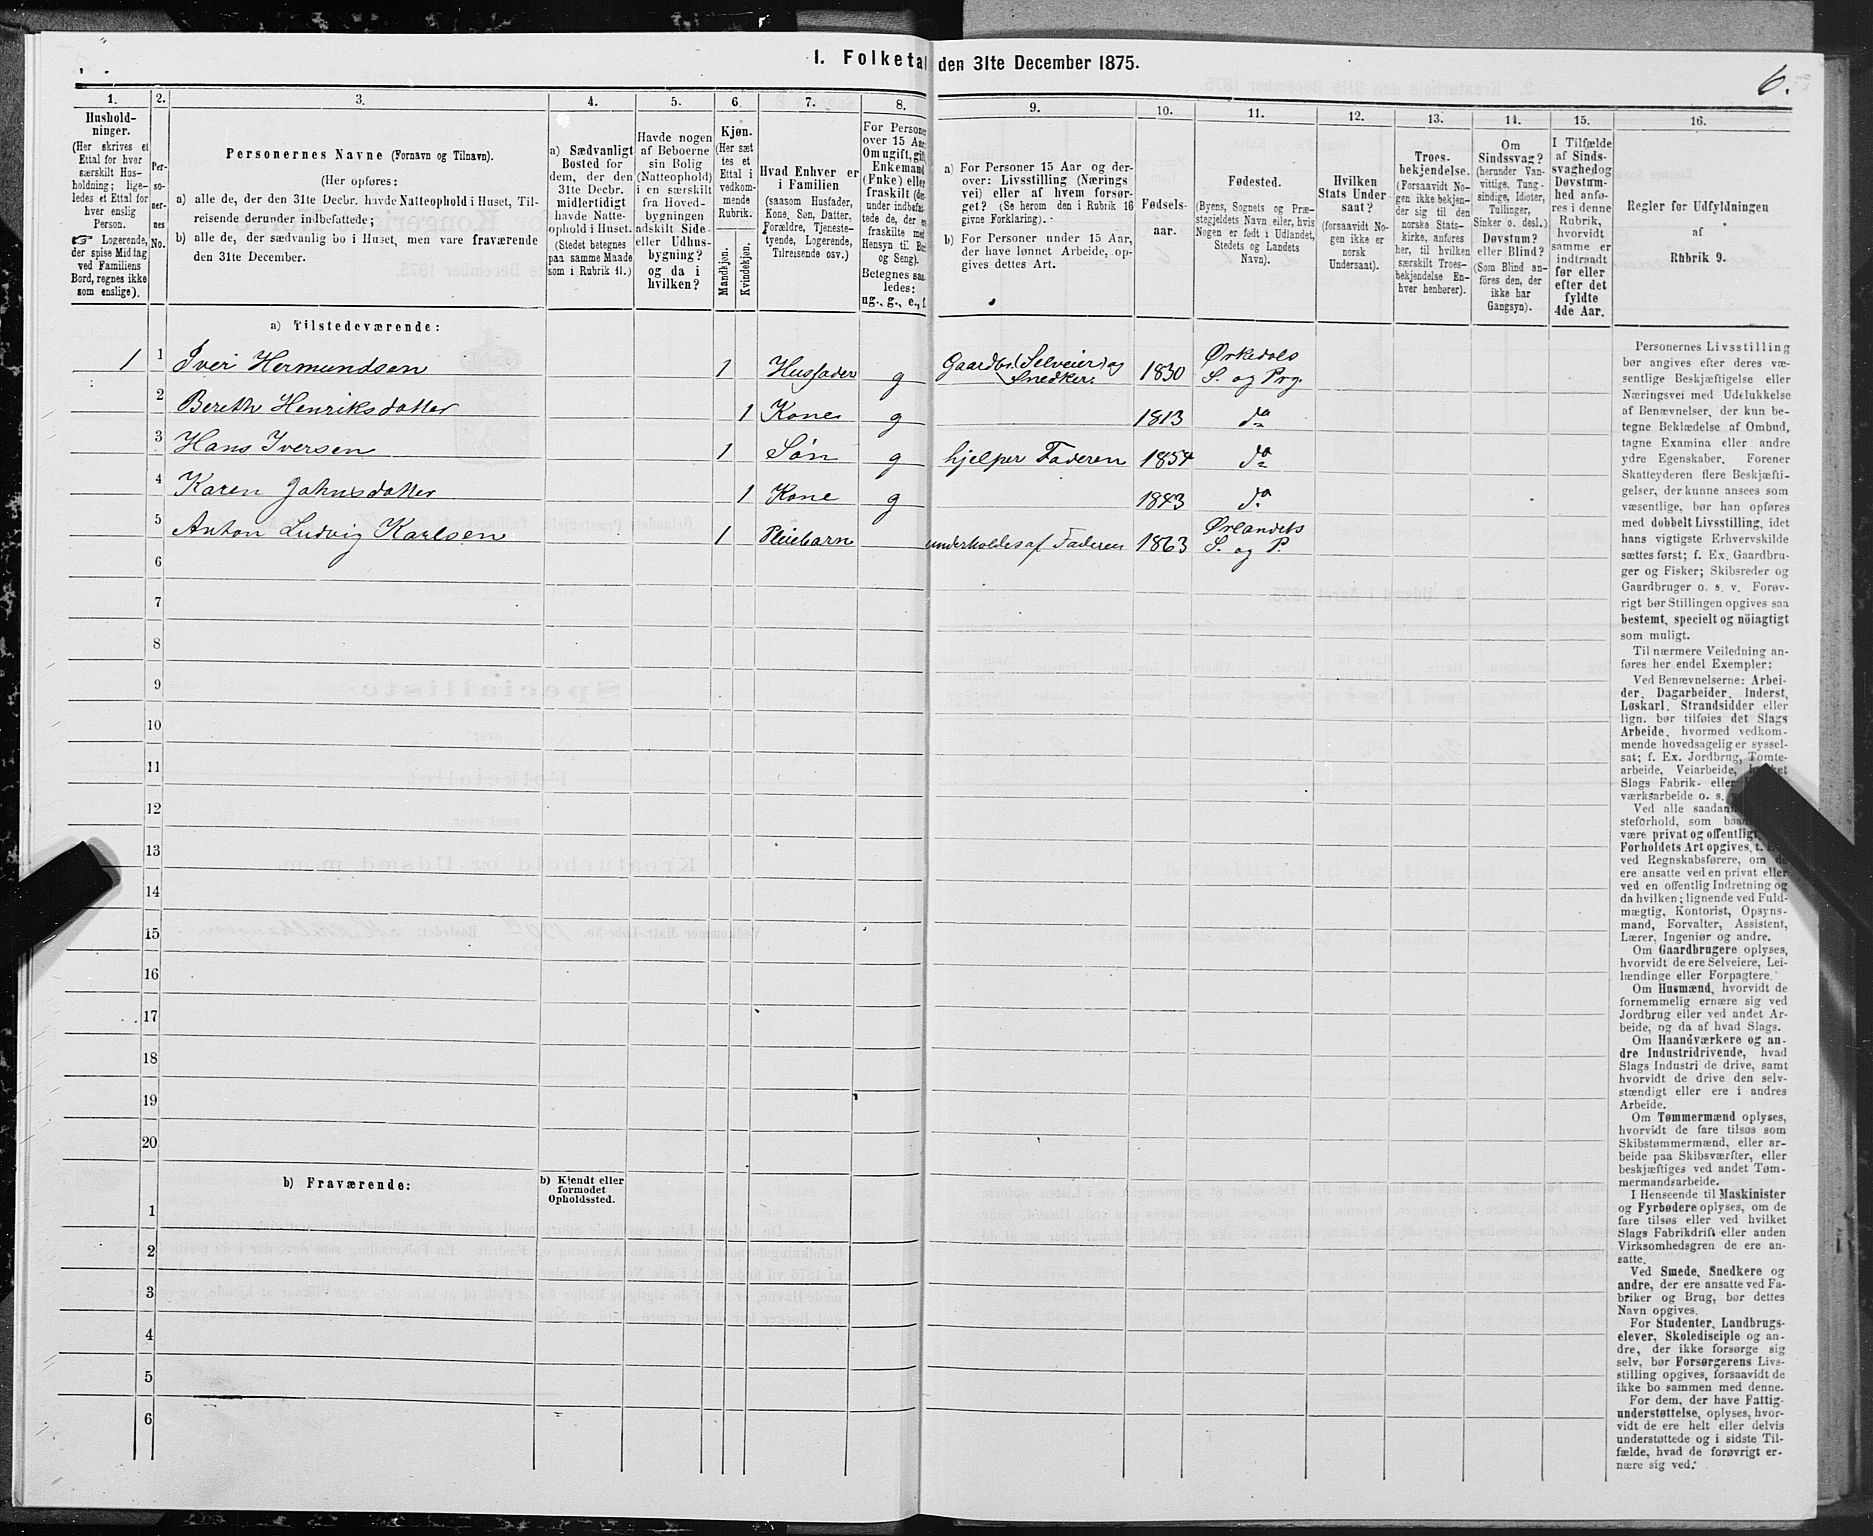 I. Folketal den 31te December 1875.
6.
1.
Hushold-
ninger.
(Her skrives et
Ettal for hver
særskilt Hus-
holdning; lige-
ledes et Ettal for
hver enslig
Person.
☞ Logerende,
der spise Middag
ved Familiens
Bord, regnes ikke
som enslige).
2.
Per-
so-
ner-
nes
No.
3.
Personernes Navne (Fornavn og Tilnavn).
(Her opføres:
a) alle de, der den 31te Decbr. havde Natteophold i Huset, Til-
reisende derunder indbefattede;
b) alle de, der sædvanlig bo i Huset, men vare fraværende
den 31te December.
4.
a) Sædvanligt
Bosted for
dem, der den
31te Decbr.
midlertidigt
havde Natte-
ophold i Huset.
(Stedet betegnes
paa samme Maade
som i Rubrik 11.)
5.
Havde nogen
af Beboerne
sin Bolig
(Natteophold)
i en særskilt
fra Hoved-
bygningen
adskilt Side-
eller Udhus-
bygning?
og da i
hvilken?
6.
Kjøn.
(Her sæt-
tes et
Ettal i
vedkom-
mende
Rubrik.
Mandkjøn.
Kvindekjøn.
7.
Hvad Enhver er
i Familien
(saasom Husfader,
Kone, Søn, Datter,
Forældre, Tjeneste-
tyende, Logerende,
Tilreisende osv.)
8.
For Personer
over 15 Aar:
Om ugift, gift,
Enkemand
(Enke) eller
fraskilt (der-
under indbefat-
tede de, der ere
fraskilte med
Hensyn til Bord
og Seng).
Betegnes saa-
ledes:
ug., g., e., f.
9.
a) For Personer 15 Aar og der-
over: Livsstilling (Nærings-
vei) eller af hvem forsør-
get? (Se herom den i Rubrik 16
givne Forklaring).
b) For Personer under 15 Aar,
der have lønnet Arbeide, op-
gives dettes Art.
10.
Fødsels-
aar.
11.
Fødested.
(Byens, Sognets og Præ-
stegjeldets Navn eller, hvis
Nogen er født i Udlandet,
Stedets og Landets
Navn).
12.
Hvilken
Stats Under-
saat?
(forsaavidt No-
gen ikke er
norsk
Undersaat).
13.
Troes-
bekjendelse.
(Forsaavidt No-
gen ikke bekjen-
der sig til den
norske Stats-
kirke, anføres
her, til hvilken
særskilt Troes-
bekjendelse En-
hver henhører).
14.
Om
Sindssvag?
(herunder Van-
vittige, Tung-
sindige, Idioter,
Tullinger,
Sinker o. desl.)
Døvstum?
eller Blind?
(Som Blind an-
føres den, der
ikke har
Gangsyn).
15.
I Tilfælde
af Sinds-
svaghed og
Døvstum-
hed anfø-
res i denne
Rubrik,
hvorvidt
samme er
indtraadt
før eller
efter det
fyldte
4de Aar.
16.
Regler for Udfyldningen
af
Rubrik 9.
a) Tilstedeværende:
1 1 Iver Hermundsen 1 Husfader g Gaardbr. (Selveier) og Snedker. 1830 Ørkedals S. og Prg.
2 Bereth Henriksdatter 1 Kone g 1813 do
3 Hans Iversen 1 Søn g hjelper Faderen 1854 do
4 Karen Johnsdatter 1 Kone g 1843 do
5 Anton Ludvig Karlsen 1 Pleiebarn underholdes af Faderen 1863 Ørlandets S. og P.
6
7
8
9
10
11
12
13
14
15
16
17
18
19
20
b) Fraværende:
b) Kjendt eller
formodet
Opholdssted.
1
2
3
4
5
6
Personernes Livsstilling
bør angives efter deres væ-
sentlige Beskjæftigelse eller
Næringsvei med Udelukkelse
af Benævnelser, der kun be-
tegne Beklædelse af Ombud,
tagne Examina eller andre
ydre Egenskaber. Forener
Skatteyderen flere Beskjæfti-
gelser, der kunne ansees som
væsentlige, bør han opføres
med dobbelt Livsstilling, idet
hans vigtigste Erhvervskilde
sættes først; f. Ex. Gaardbru-
ger og Fisker; Skibsreder og
Gaardbruger o. s. v. Forøv-
rigt bør Stillingen opgives saa
bestemt, specielt og nöiagtigt
som muligt.
Til nærmere Veiledning an-
føres her endel Exempler:
Ved Benævnelserne: Arbei-
der, Dagarbeider, Inderst,
Løskarl, Strandsidder eller
lign. bør tilføies det Slags
Arbeide, hvormed vedkom-
mende hovedsagelig er syssel-
sat; f. Ex. Jordbrug, Tomte-
arbeide, Veiarbeide, hvilket
Slags Fabrik- eller
værksarbeide o. s.
Ved alle saadan
steforhold, som baa
være privat og offentligt,
Forholdets Art opgives, t.
ved Regnskabsførere, om de
ere ansatte ved en privat eller
ved en offentlig Indretning og
da hvilken; lignende ved Fuld-
mægtig, Kontorist, Opsyns-
mand, Forvalter, Assistent,
Lærer, Ingeniør og andre.
Om Gaardbrugere oplyses,
hvorvidt de ere Selveiere, Lei-
lændinge eller Forpagtere.
Om Husmænd, hvorvidt de
fornemmelig ernære sig ved
Jordbrug eller ved andet Ar-
beide, og da af hvad Slags.
Om Haandværkere og an-
dre Industridrivende, hvad
Slags Industri de drive, samt
hvorvidt de drive den selv-
stændigt eller ere i andres
Arbeide.
Om Tømmermænd oplyses,
hvorvidt de fare tilsøs som
Skibstømmermænd, eller ar-
beide paa Skibsværfter, eller
beskjæftiges ved andet Tøm-
mermandsarbeide.
I Henseende til Maskinister
og Fyrbødere oplyses, om de
fare tilsøs eller ved hvilket
Slags Fabrikdrift eller anden
Virksomhedsgren de ere an-
satte.
Ved Smede, Snedkere og
andre, der ere ansatte ved Fa-
briker og Brug, bør dettes
Navn opgives.
For Studenter, Landbrugs-
elever, Skoledisciple og an-
dre, der ikke forsørge sig
selv, bør Forsørgerens Livs-
stilling opgives, forsaavidt de
ikke bo sammen med denne.
For dem, der have Fattig-
understøttelse, oplyses, hvor-
vidt de ere helt eller delvis
understøttede og i sidste Til-
fælde, hvad de forøvrigt er-
nære sig ved.